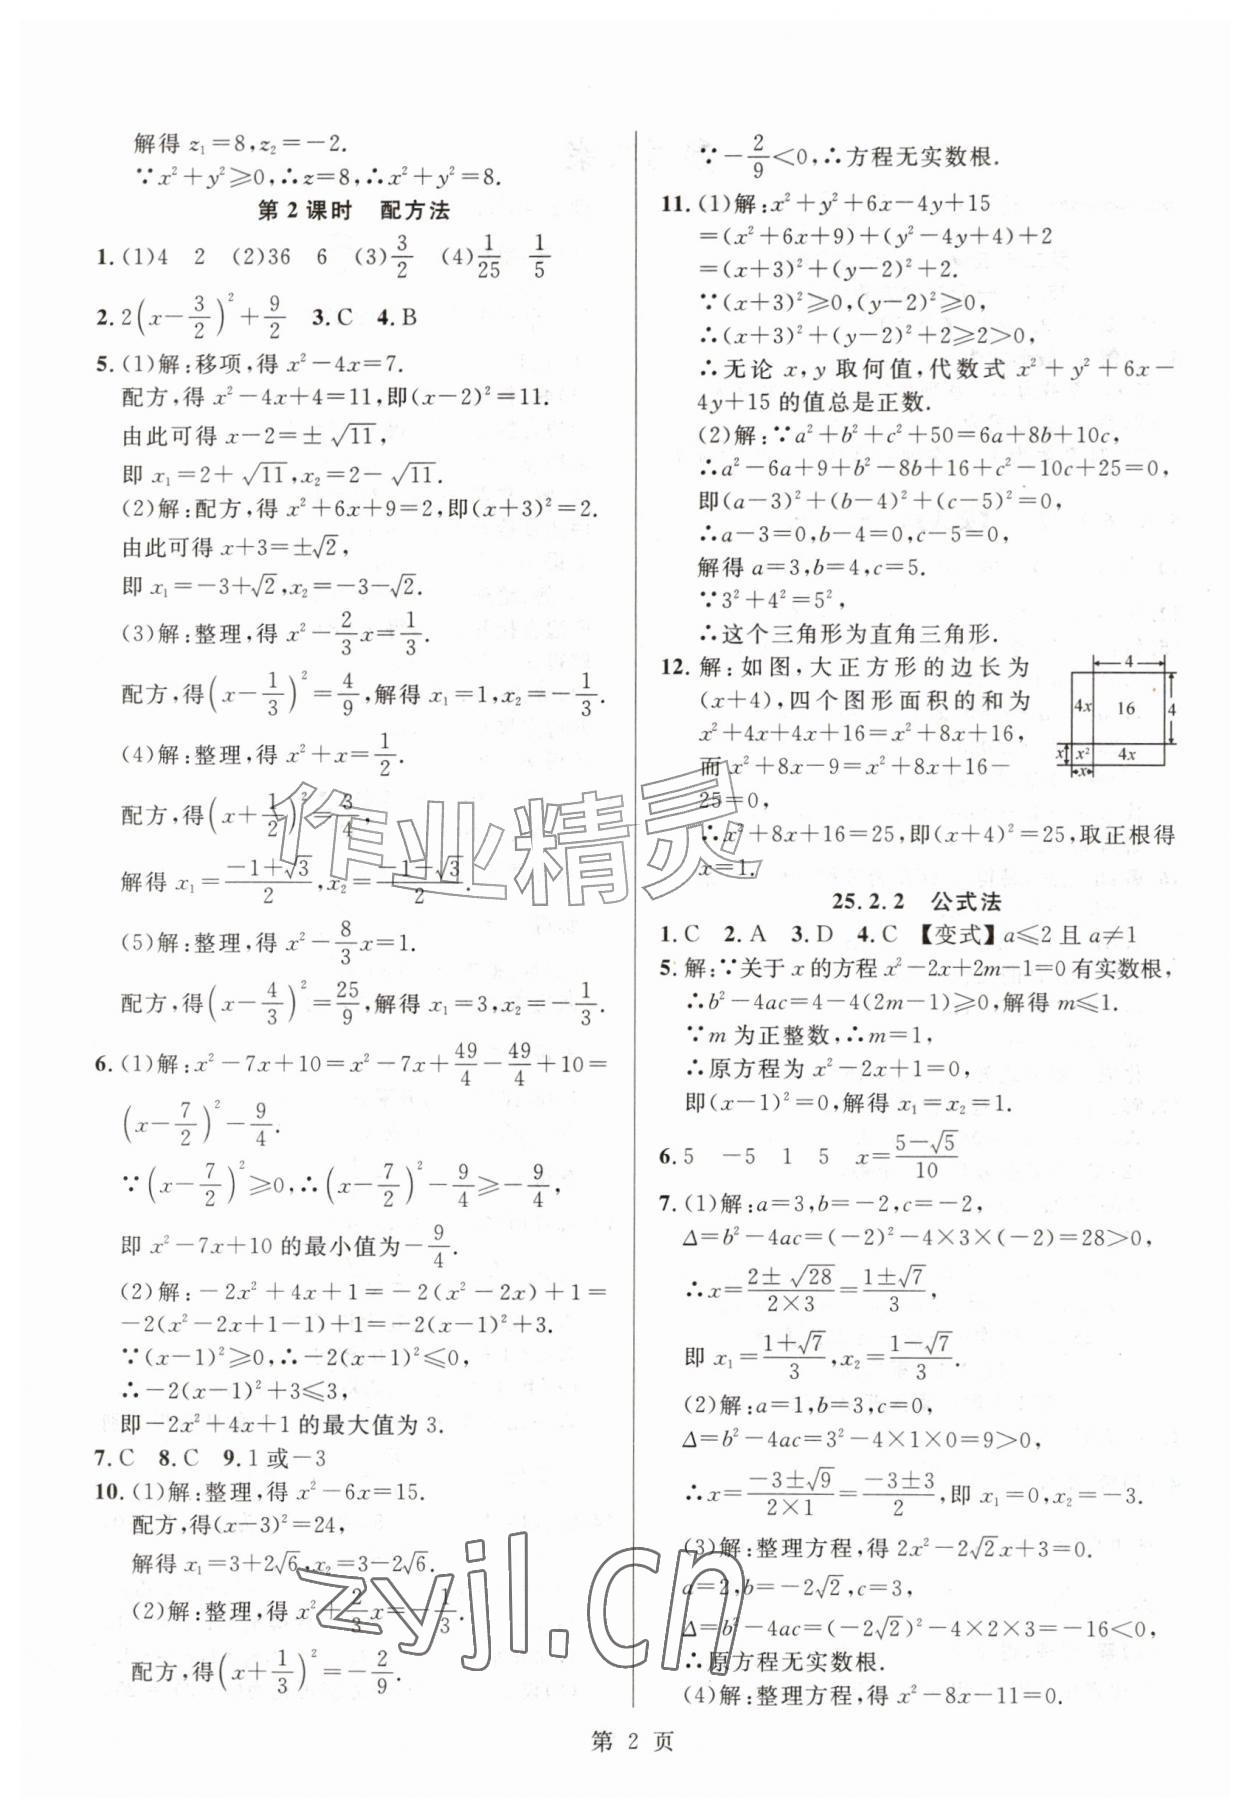 解得 z₁=8,z₂=-2.
∵x²+y²≥0,∴z=8,∴x²+y²=8.
第2课时 配方法
1.(1)4 2 (2)36 6 (3)3/2 (4)1/25 1/5
2.2(x-3/2)²+9/2 3.C 4.B
5.(1)解:移项,得 x²-4x=7.
配方,得 x²-4x+4=11,即(x-2)²=11.
由此可得 x-2=±√11,
即 x₁=2+√11,x₂=2-√11.
(2)解:配方,得 x²+6x+9=2,即(x+3)²=2.
由此可得 x+3=±√2,
即 x₁=-3+√2,x₂=-3-√2.
(3)解:整理,得 x²-2/3x=1/3.
配方,得(x-1/3)²=4/9,解得 x₁=1,x₂=-1/3.
(4)解:整理,得 x²+x=1/2.
配方,得(x+1/2)²=3/4,
解得 x₁=(-1+√3)/2,x₂=(-1-√3)/2.
(5)解:整理,得 x²-8/3x=1.
配方,得(x-4/3)²=25/9,解得 x₁=3,x₂=-1/3.
6.(1)解:x²-7x+10=x²-7x+49/4-49/4+10=
(x-7/2)²-9/4.
∵(x-7/2)²≥0,∴(x-7/2)²-9/4≥-9/4,
即 x²-7x+10 的最小值为-9/4.
(2)解:-2x²+4x+1=-2(x²-2x)+1=
-2(x²-2x+1-1)+1=-2(x-1)²+3.
∵(x-1)²≥0,∴-2(x-1)²≤0,
∴-2(x-1)²+3≤3,
即-2x²+4x+1 的最大值为 3.
7.C 8.C 9.1 或-3
10.(1)解:整理,得 x²-6x=15.
配方,得(x-3)²=24,
解得 x₁=3+2√6,x₂=3-2√6.
(2)解:整理,得 x²+2/3x=-1/3.
配方,得(x+1/3)²=-2/9.
∵-2/9<0,∴方程无实数根.
11.(1)解:x²+y²+6x-4y+15
=(x²+6x+9)+(y²-4y+4)+2
=(x+3)²+(y-2)²+2.
∵(x+3)²≥0,(y-2)²≥0,
∴(x+3)²+(y-2)²+2≥2>0,
∴无论 x,y 取何值,代数式 x²+y²+6x-
4y+15 的值总是正数.
(2)解:∵a²+b²+c²+50=6a+8b+10c,
∴a²-6a+9+b²-8b+16+c²-10c+25=0,
即(a-3)²+(b-4)²+(c-5)²=0,
∴a-3=0,b-4=0,c-5=0,
解得 a=3,b=4,c=5.
∵3²+4²=5²,
∴这个三角形为直角三角形.
12.解:如图,大正方形的边长为
(x+4),四个图形面积的和为
x²+4x+4x+16=x²+8x+16,
而 x²+8x-9=x²+8x+16-
25=0,
∴x²+8x+16=25,即(x+4)²=25,取正根得
x=1.
4
4x 16 4
x x² 4x
x
25.2.2 公式法
1.C 2.A 3.D 4.C 【变式】a≤2 且 a≠1
5.解:∵关于 x 的方程 x²-2x+2m-1=0 有实数根,
∴b²-4ac=4-4(2m-1)≥0,解得 m≤1.
∵m 为正整数,∴m=1,
∴原方程为 x²-2x+1=0,
即(x-1)²=0,解得 x₁=x₂=1.
6.5 -5 1 5 x=(5-√5)/10
7.(1)解:a=3,b=-2,c=-2,
Δ=b²-4ac=(-2)²-4×3×(-2)=28>0,
∴x=(2±√28)/(2×3)=(1±√7)/3,
即 x₁=(1+√7)/3,x₂=(1-√7)/3.
(2)解:a=1,b=3,c=0,
Δ=b²-4ac=3²-4×1×0=9>0,
∴x=(-3±√9)/(2×1)=(-3±3)/2,即 x₁=0,x₂=-3.
(3)解:整理方程,得 2x²-2√2x+3=0.
a=2,b=-2√2,c=3,
Δ=b²-4ac=(-2√2)²-4×2×3=-16<0,
∴原方程无实数根.
(4)解:整理方程,得 x²-8x-11=0.
作业精灵
zyjl.cn
第 2 页